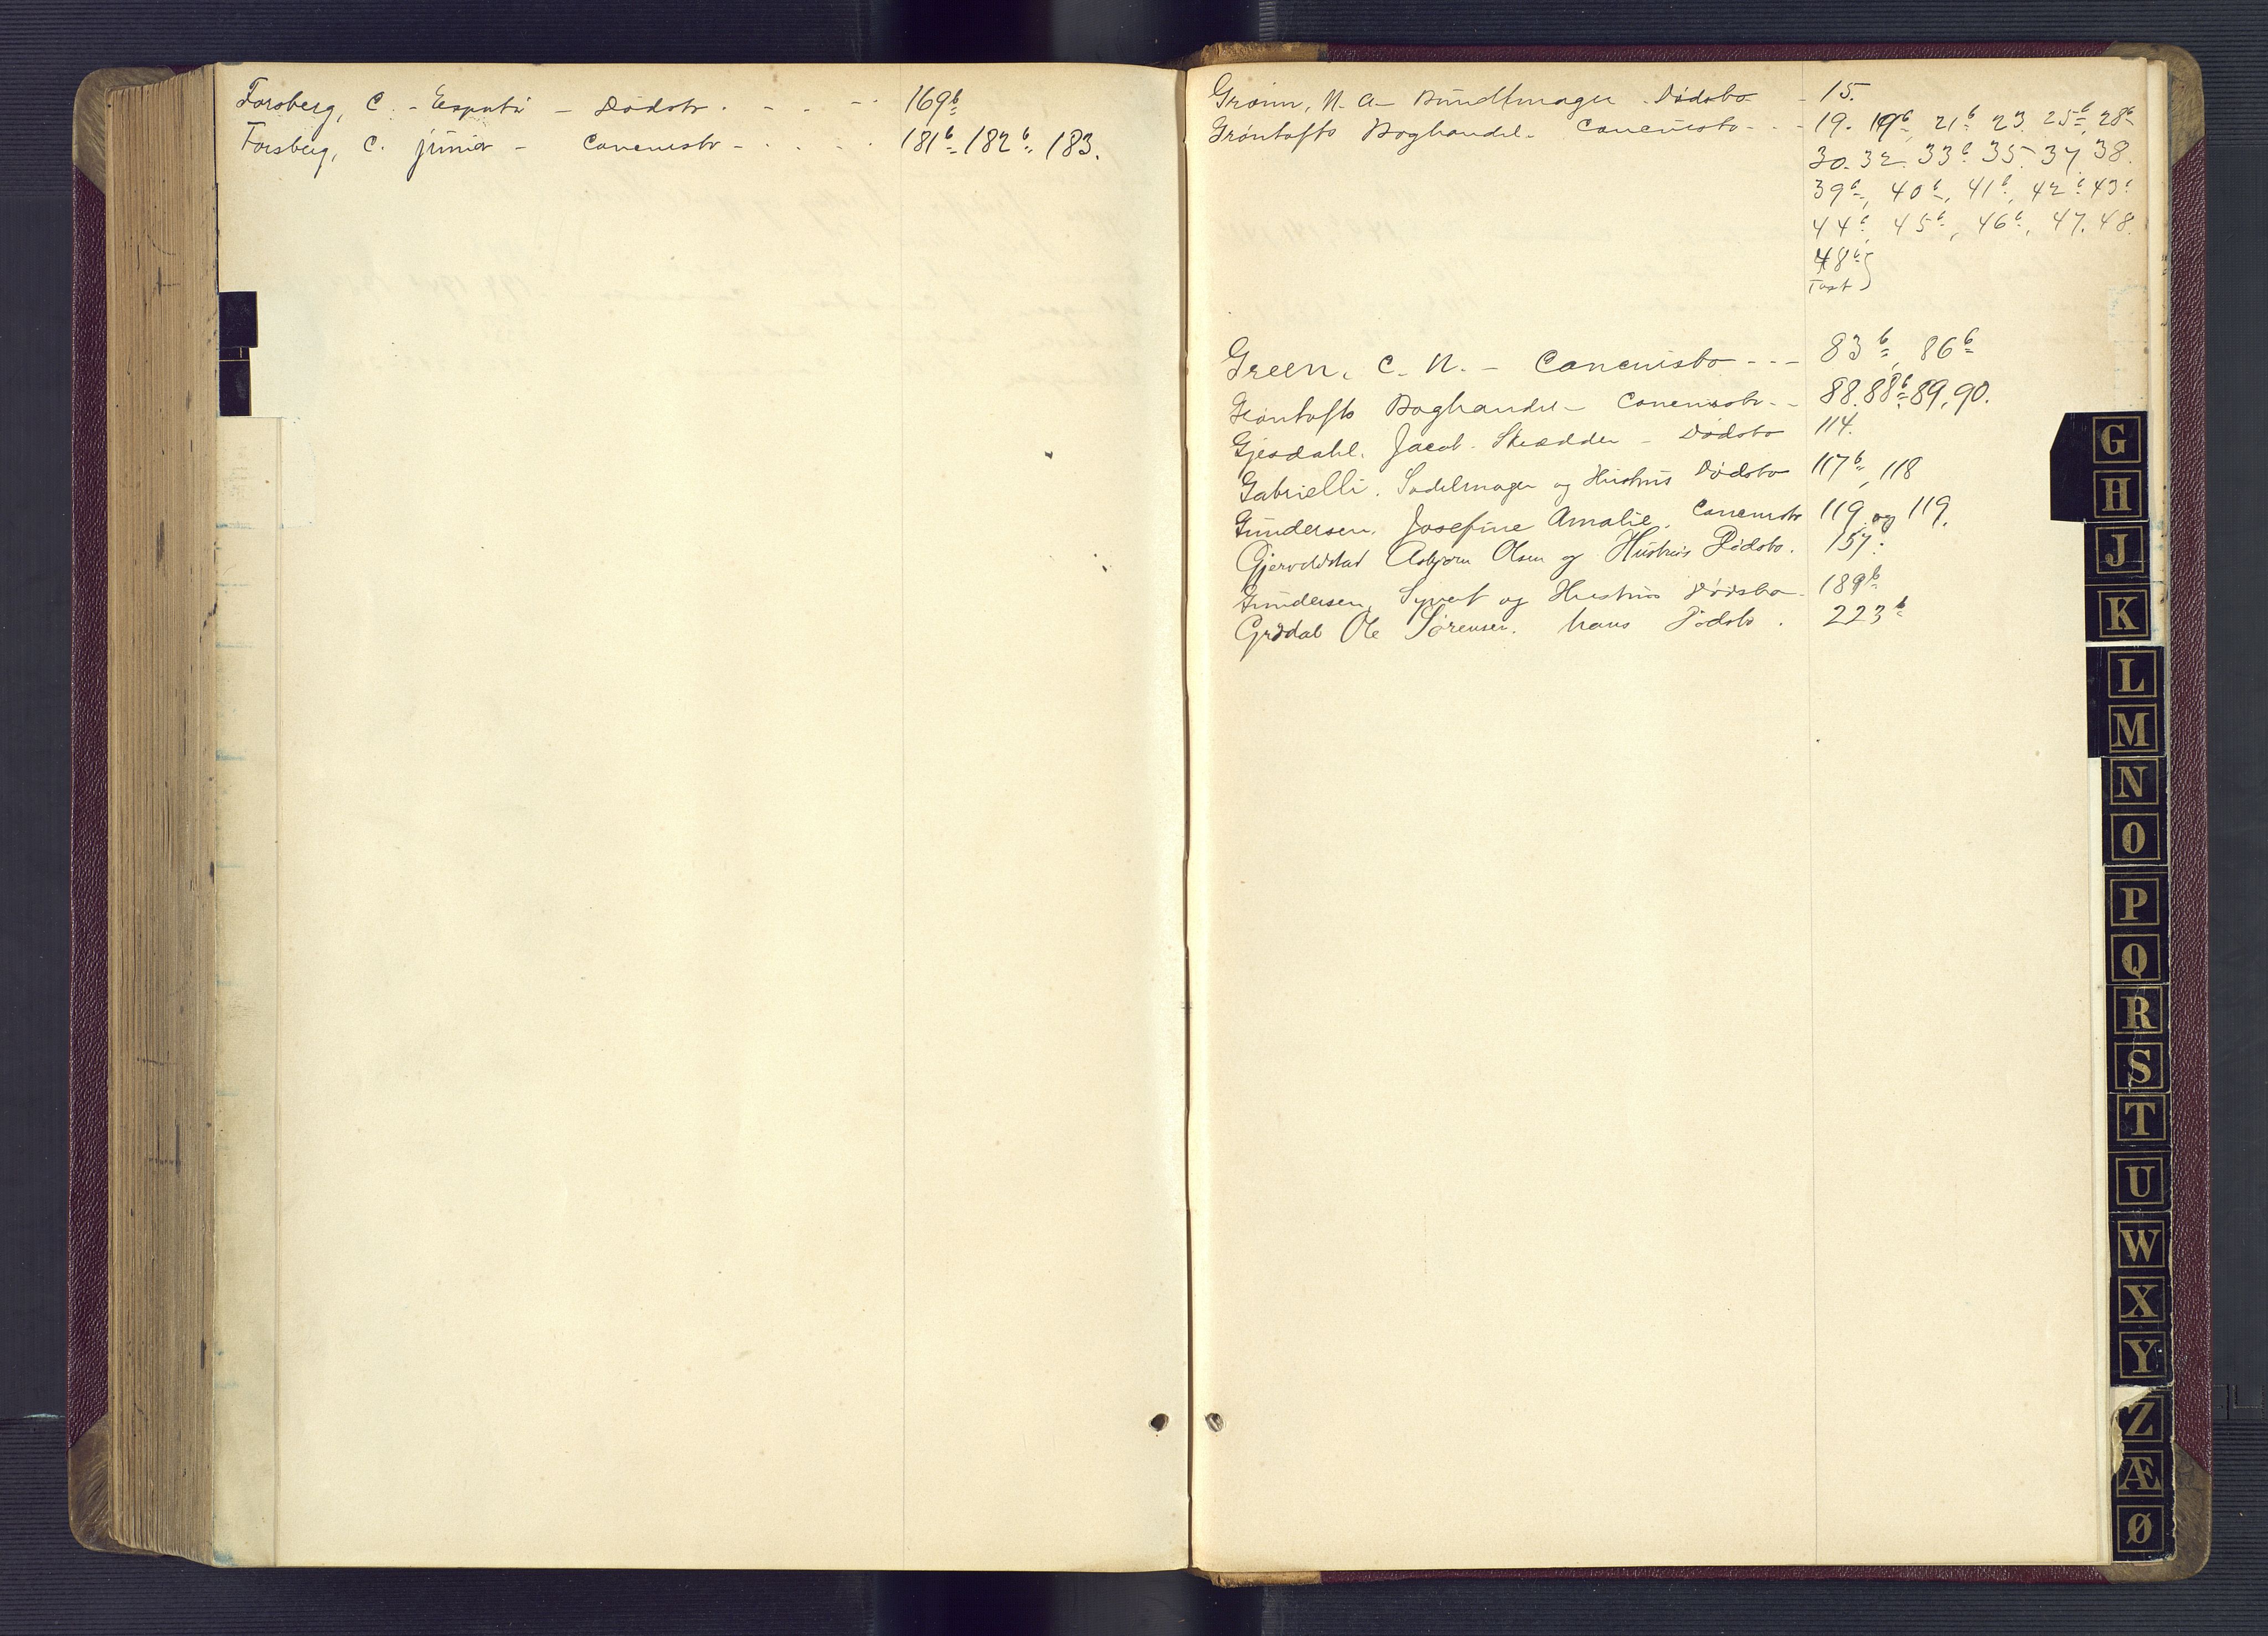 Forsberg, C. - - Dødsbo . - - - 169b
Forsberg, C. junior - Concursbo - . . . . 181b 182b, 183.
Grønn, N. A - Bundtmager. Dødsbo - 15.
Grøntofts Boghandel - Concursbo - . - 19. 19b, 21b 23. 25b, 28b
30. 32. 33b 35. 37. 38.
39b, 40b, 41b, 42b 43b
44b, 45b, 46b, 47. 48.
48b }
Green, C. N. - Concursbo - - - 83b, 86b
Grøntofts Boghandel - Concursbo - - 88. 88b, 89, 90.
Gjesdahl, Jacob - Skrædder - Dødsbo 114.
Gabrielli, Sadelmager og Hustrus Dødsbo 117b, 118
Gundersen, Josefine Amalie. Concursbo 119. og 119.
Gjervoldstad Asbjørn Olsen og Hustrus Dødsbo. 157.
Gundersen, Syvert og Hustrus Dødsbo - 189b
Grødal Ole Sørensen. hans Dødsbo . 223b
G
H
J
K
L
M
N
O
P
Q
R
S
T
U
W
X
Y
Z
Æ
Ø